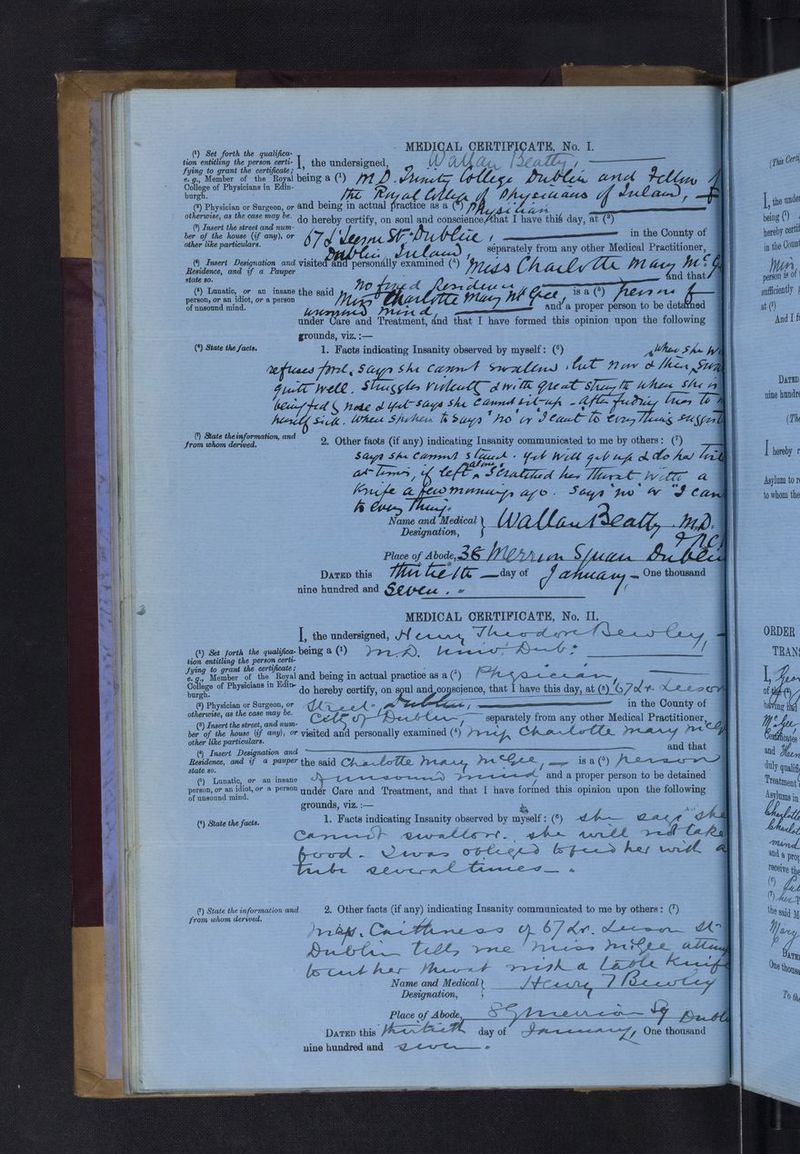 MEDICAL CERTIFICATE, No. I.
(¹) Set forth the qualifica-
tion entitling the person certi-
fying to grant the certificate;
e. g., Member of the Royal
College of Physicians in Edin-
burgh.
(²) Physician or Surgeon, or
otherwise, as the case may be.
(³) Insert the street and num-
ber of the house (if any), or
other like particulars.
(⁴) Insert Designation and
Residence, and if a Pauper
state so.
(⁵) Lunatic, or an insane
person, or an idiot, or a person
of unsound mind.
(⁶) State the facts.
(⁷) State the information, and
from whom derived.
I, the undersigned, Wallace Beatty,
being a (¹) M.D. Trinity College Dublin and Fellow of
the Royal College of Physicians of Ireland,
and being in actual practice as a (²) Physician
do hereby certify, on soul and conscience, that I have this day, at (³)
67 Lr Leeson St Dublin, in the County of
Dublin Ireland, separately from any other Medical Practitioner,
visited and personally examined (⁴) Miss Charlotte Mary McGee
No fixed Residence and that
the said Miss Charlotte Mary McGee is a (⁵) person of
unsound mind, and a proper person to be detained
under Care and Treatment, and that I have formed this opinion upon the following
grounds, viz.:—
1. Facts indicating Insanity observed by myself: (⁶) when she
refuses food, says she cannot swallow, but now & then
quite well. Struggles violently & with great strength when she is
being fed by nose & yet says she cannot sit up - after feeding tries to
herself sick. When spoken to says "no" or "I can't" to everything
2. Other facts (if any) indicating Insanity communicated to me by others: (⁷)
says she cannot stand. Yet will get up & do her
at times, if left alone. Scratched her throat with a
knife a few mornings ago. Says "no" or "I can
to every thing.
Name and Medical Designation, Wallace Beatty M.D.
Place of Abode, 38 Merrion Square Dublin
DATED this thirtieth day of January One thousand
nine hundred and Seven.
MEDICAL CERTIFICATE, No. II.
(¹) Set forth the qualifica-
tion entitling the person certi-
fying to grant the certificate;
e. g., Member of the Royal
College of Physicians in Edin-
burgh.
(²) Physician or Surgeon, or
otherwise, as the case may be.
(³) Insert the street, and num-
ber of the house (if any), or
other like particulars.
(⁴) Insert Designation and
Residence, and if a pauper
state so.
(⁵) Lunatic, or an insane
person, or an idiot, or a person
of unsound mind.
(⁶) State the facts.
(⁷) State the information and
from whom derived.
I, the undersigned, Henry Theodore Bewley,
being a (¹) M.D. Univ. Dub:
and being in actual practice as a (²) Physician,
do hereby certify, on soul and conscience, that I have this day, at (³) 67 Lr. Leeson
Street, Dublin, in the County of
City of Dublin, separately from any other Medical Practitioner,
visited and personally examined (⁴) Miss Charlotte Mary McG
and that
the said Charlotte Mary McGee, is a (⁵) person
of unsound mind and a proper person to be detained
under Care and Treatment, and that I have formed this opinion upon the following
grounds, viz.:—
1. Facts indicating Insanity observed by myself: (⁶) she says "she
cannot swallow". she will not take
food. I was obliged to feed her with a
tube several times.
2. Other facts (if any) indicating Insanity communicated to me by others: (⁷)
Caithness of 67 Lr. Leeson St
Dublin tells me Miss McGee
to cut her throat with a table knife
Name and Medical Designation, Henry T Bewley
Place of Abode, Merrion Sq Dubl
DATED this thirtieth day of January, One thousand
nine hundred and seven.
(This
I, the unde
being (¹)
hereby certi
in the Count
person is of
sufficiently
at (³)
And I f
DATED
nine hundre
(Th
I hereby r
Asylum to r
to whom the
ORDER
TRAN
I,
of
having had
Certificates
and
duly qualifi
Treatment
Asylums in
mind
and a prop
receive the
the said M
Mary
DATE
One thousa
To the